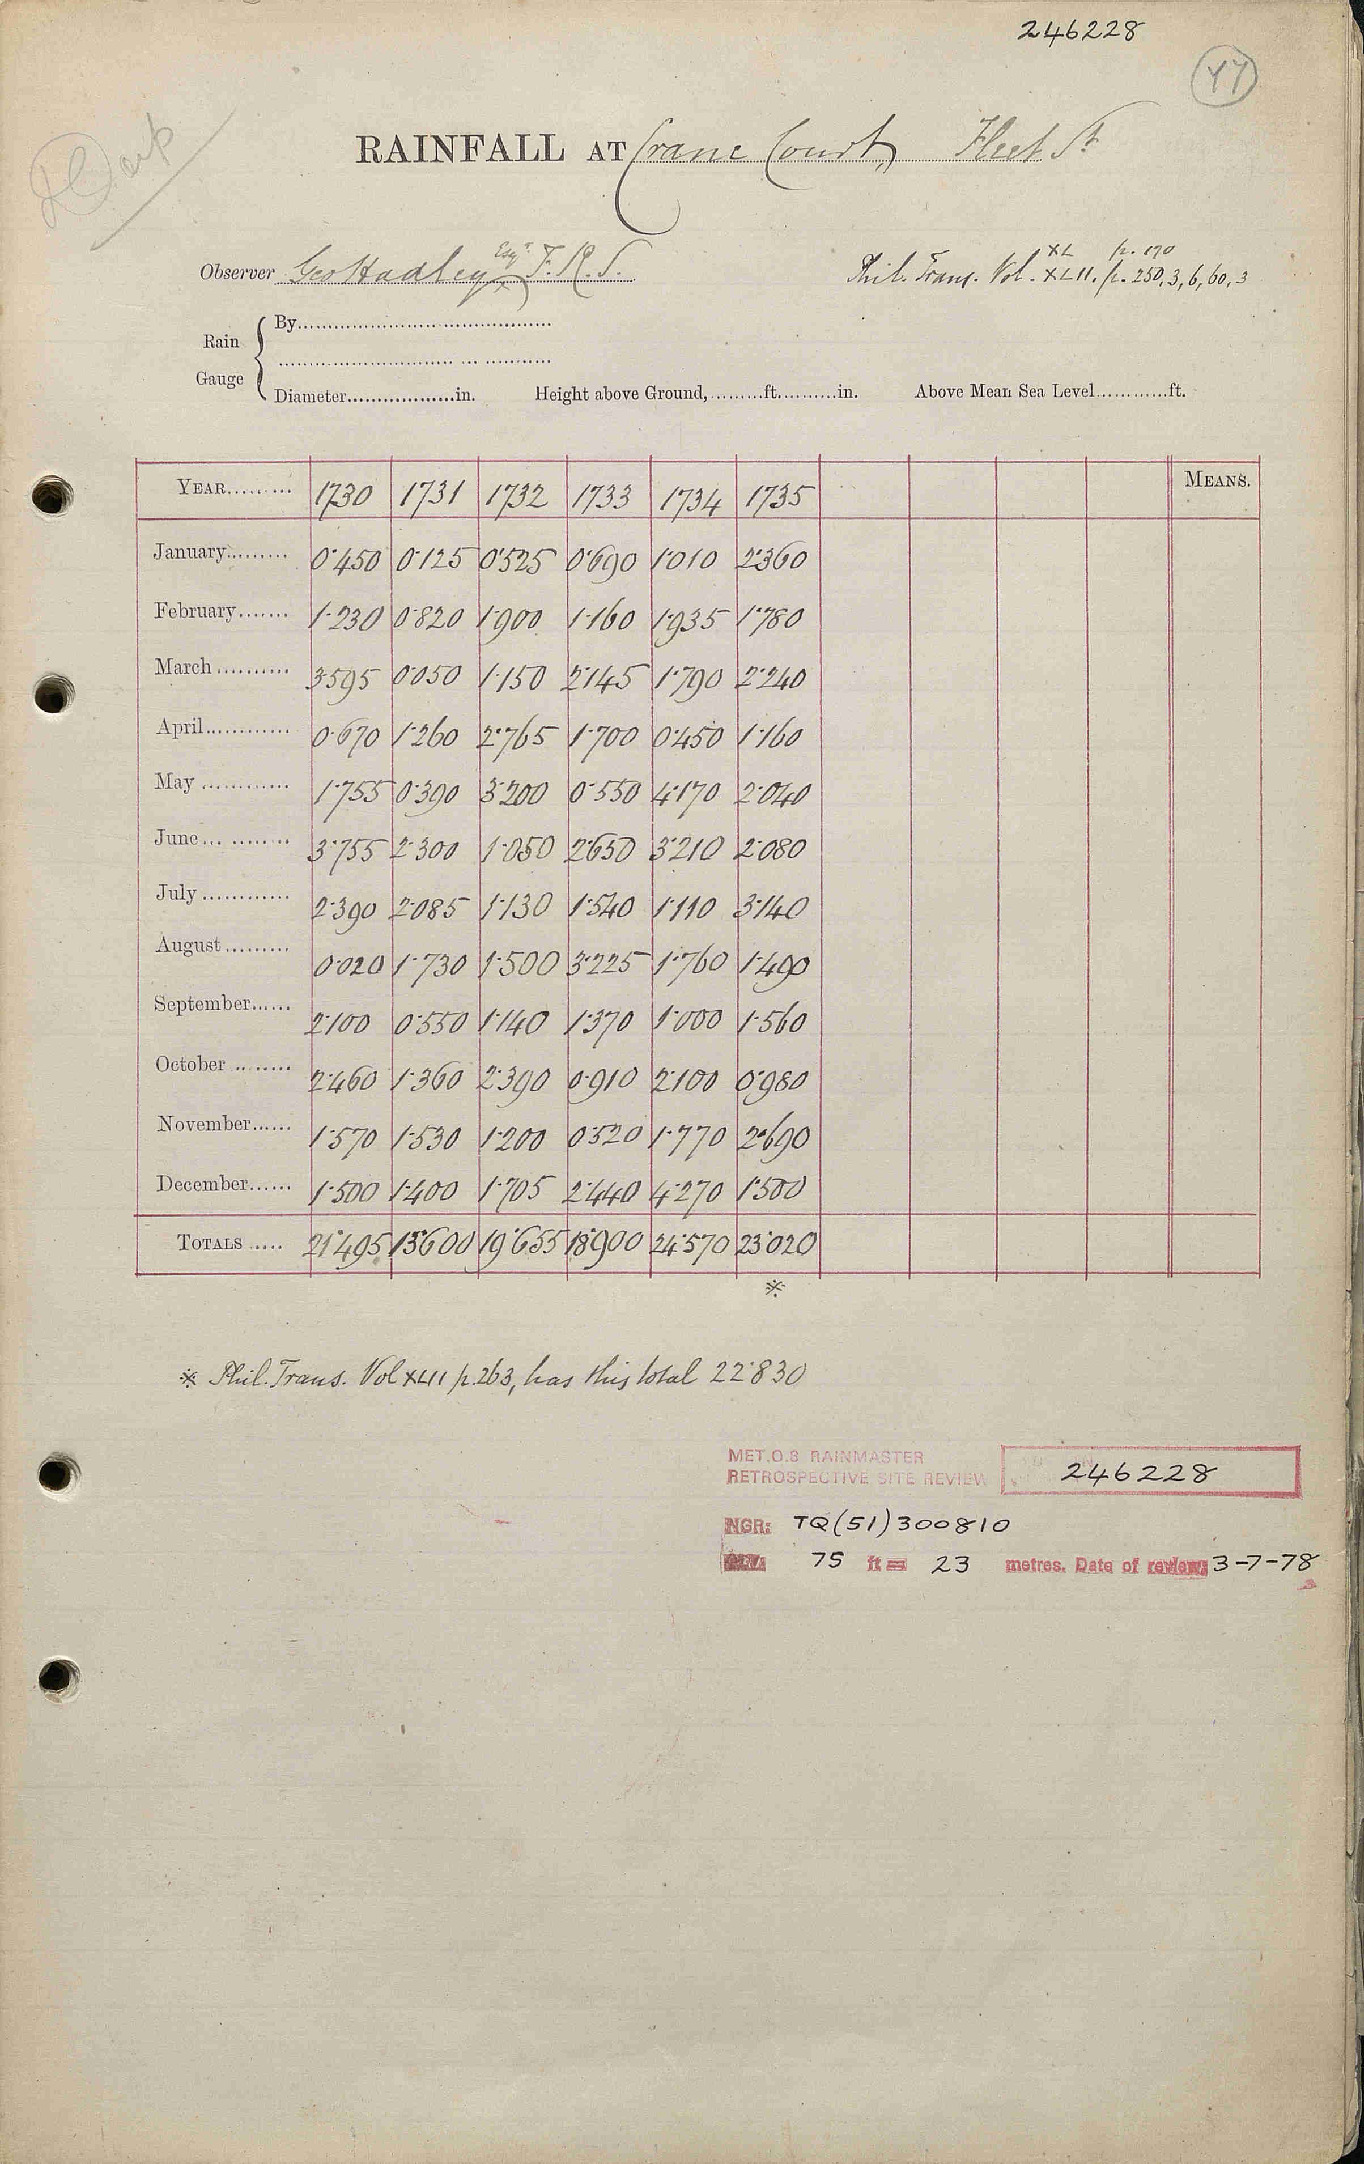 246228
RAINFALL AT Crane Court, Fleet St
Observer Geo Hadley Esqr. F.R.S.
XL p. 170
Phil. Trans. Vol. XLII. p. 250, 3, 6, 60, 3
Rain Gauge
By
Diameter in. Height above Ground, ft. in. Above Mean Sea Level ft.
YEAR 1730 1731 1732 1733 1734 1735 MEANS.
January 0·450 0·125 0·525 0·690 1·010 2·360
February 1·230 0·820 1·900 1·160 1·935 1·780
March 3·595 0·050 1·150 2·145 1·790 2·240
April 0·670 1·260 2·765 1·700 0·450 1·160
May 1·755 0·390 3·200 0·550 4·170 2·040
June 3·755 2·300 1·050 2·650 3·210 2·080
July 2·390 2·085 1·130 1·540 1·110 3·140
August 0·020 1·730 1·500 3·225 1·760 1·490
September 2·100 0·550 1·140 1·370 1·000 1·560
October 2·460 1·360 2·390 0·910 2·100 0·980
November 1·570 1·530 1·200 0·520 1·770 2·690
December 1·500 1·400 1·705 2·440 4·270 1·500
TOTALS 21·495 13·600 19·655 18·900 24·570 23·020
※
※ Phil. Trans. Vol XLII p. 263, has this total 22·830
MET.O.8 RAINMASTER
RETROSPECTIVE SITE REVIEW
246228
NGR: TQ (51) 300810
75 ft = 23 metres. Date of review 3-7-78